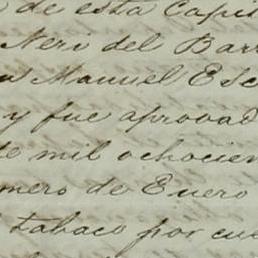 de esta Capit
Neri del Barr
Manuel Esc
y fue aprovad
de mil ochocien
mero de Enero
tabaco por cu